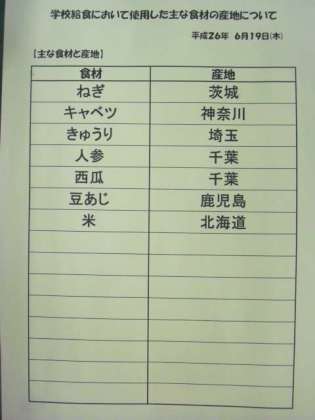 学校給食において使用した主な食材の産地について
平成26年 6月19日(木)
【主な食材と産地】
食材 産地
ねぎ 茨城
キャベツ 神奈川
きゅうり 埼玉
人参 千葉
西瓜 千葉
豆あじ 鹿児島
米 北海道